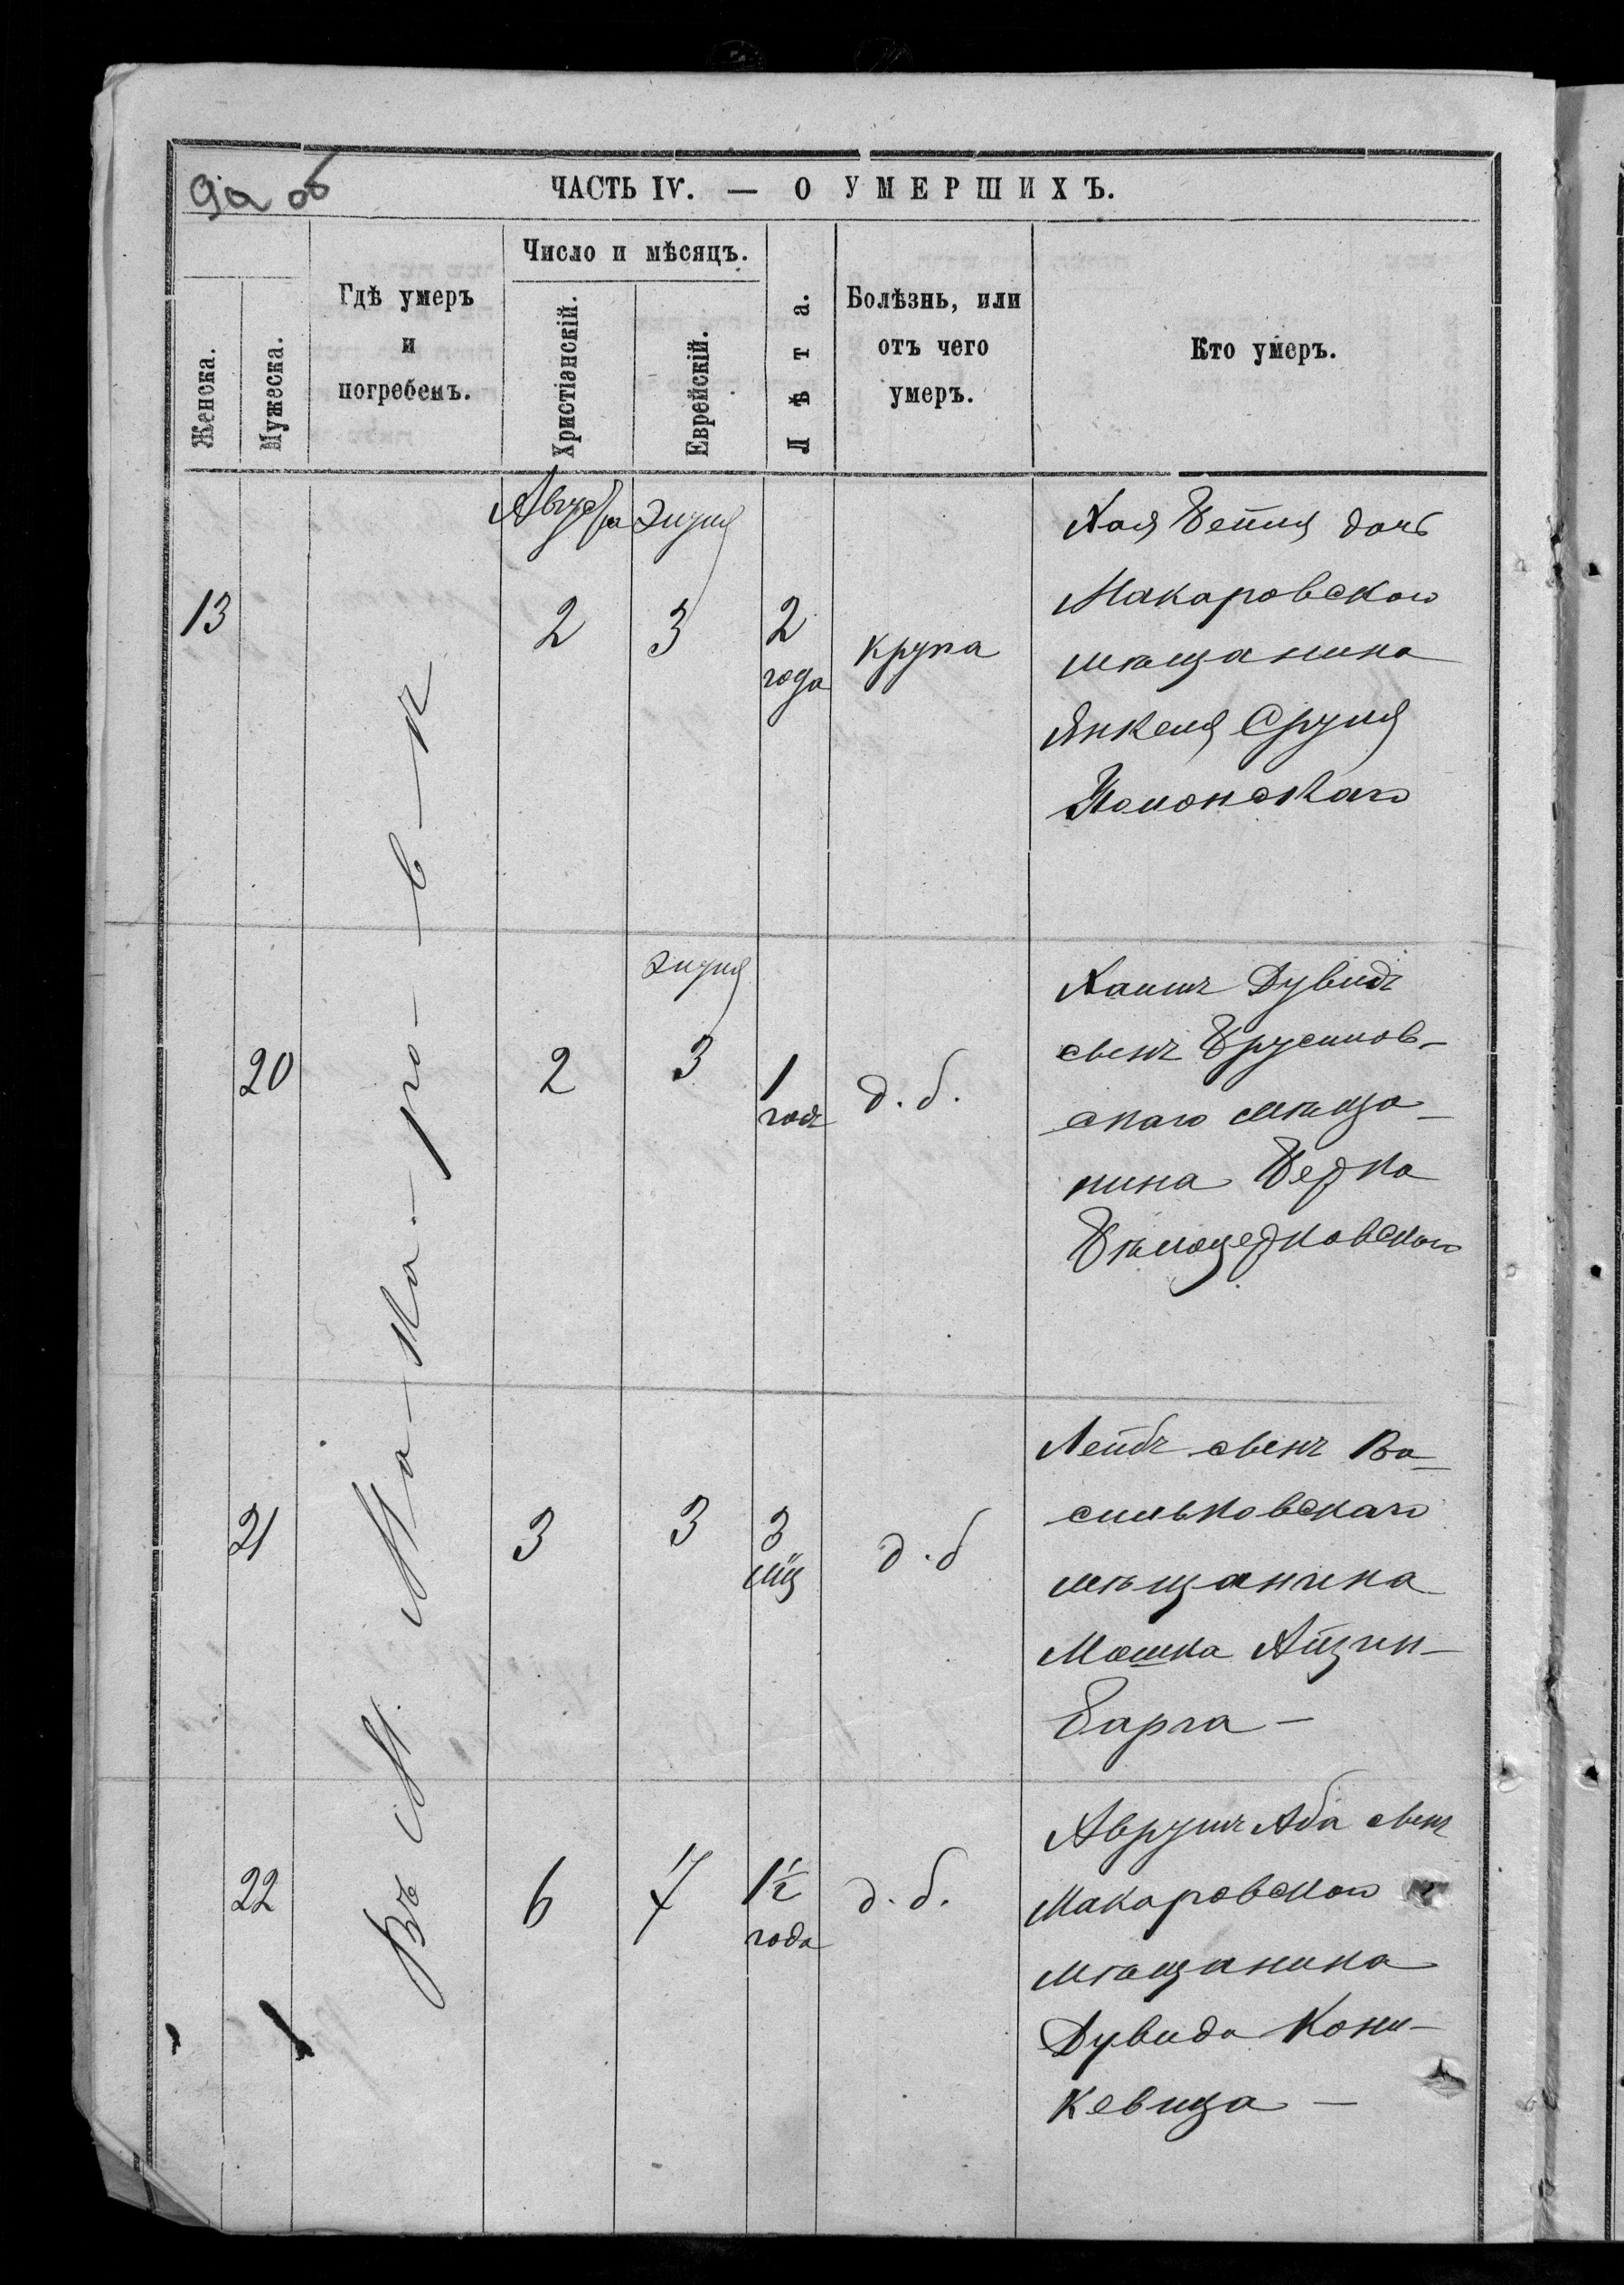 9а об
ЧАСТЬ IV. — О УМЕРШИХЪ.
Женска.
Мужеска.
Гдѣ умеръ
и
погребенъ.
Число и мѣсяцъ.
Христіанскій.
Еврейскій.
Лѣта.
Болѣзнь, или
отъ чего
умеръ.
Кто умеръ.
Въ М. Ма-ка-ро-в-ѣ
Августа Элуля
13 2 3 2 года крупа
Хая Бейля дочь
Макаровскаго
мѣщанина
Янкеля Сруля
20 2 Элуля 3 1 годъ д. б.
Хаимъ Дувидъ
сынъ Брусилов-
скаго мѣща-
нина Берка
Бѣлоцерковскаго
21 3 3 3 мц д. б
Лейбъ сынъ Ва-
сильковскаго
мѣщанина
Мошка Айзин-
барга —
22 6 7 1½ года д. б.
Аврумъ Аба сынъ
Макаровскаго
мѣщанина
Дувида Кони-
кевица —